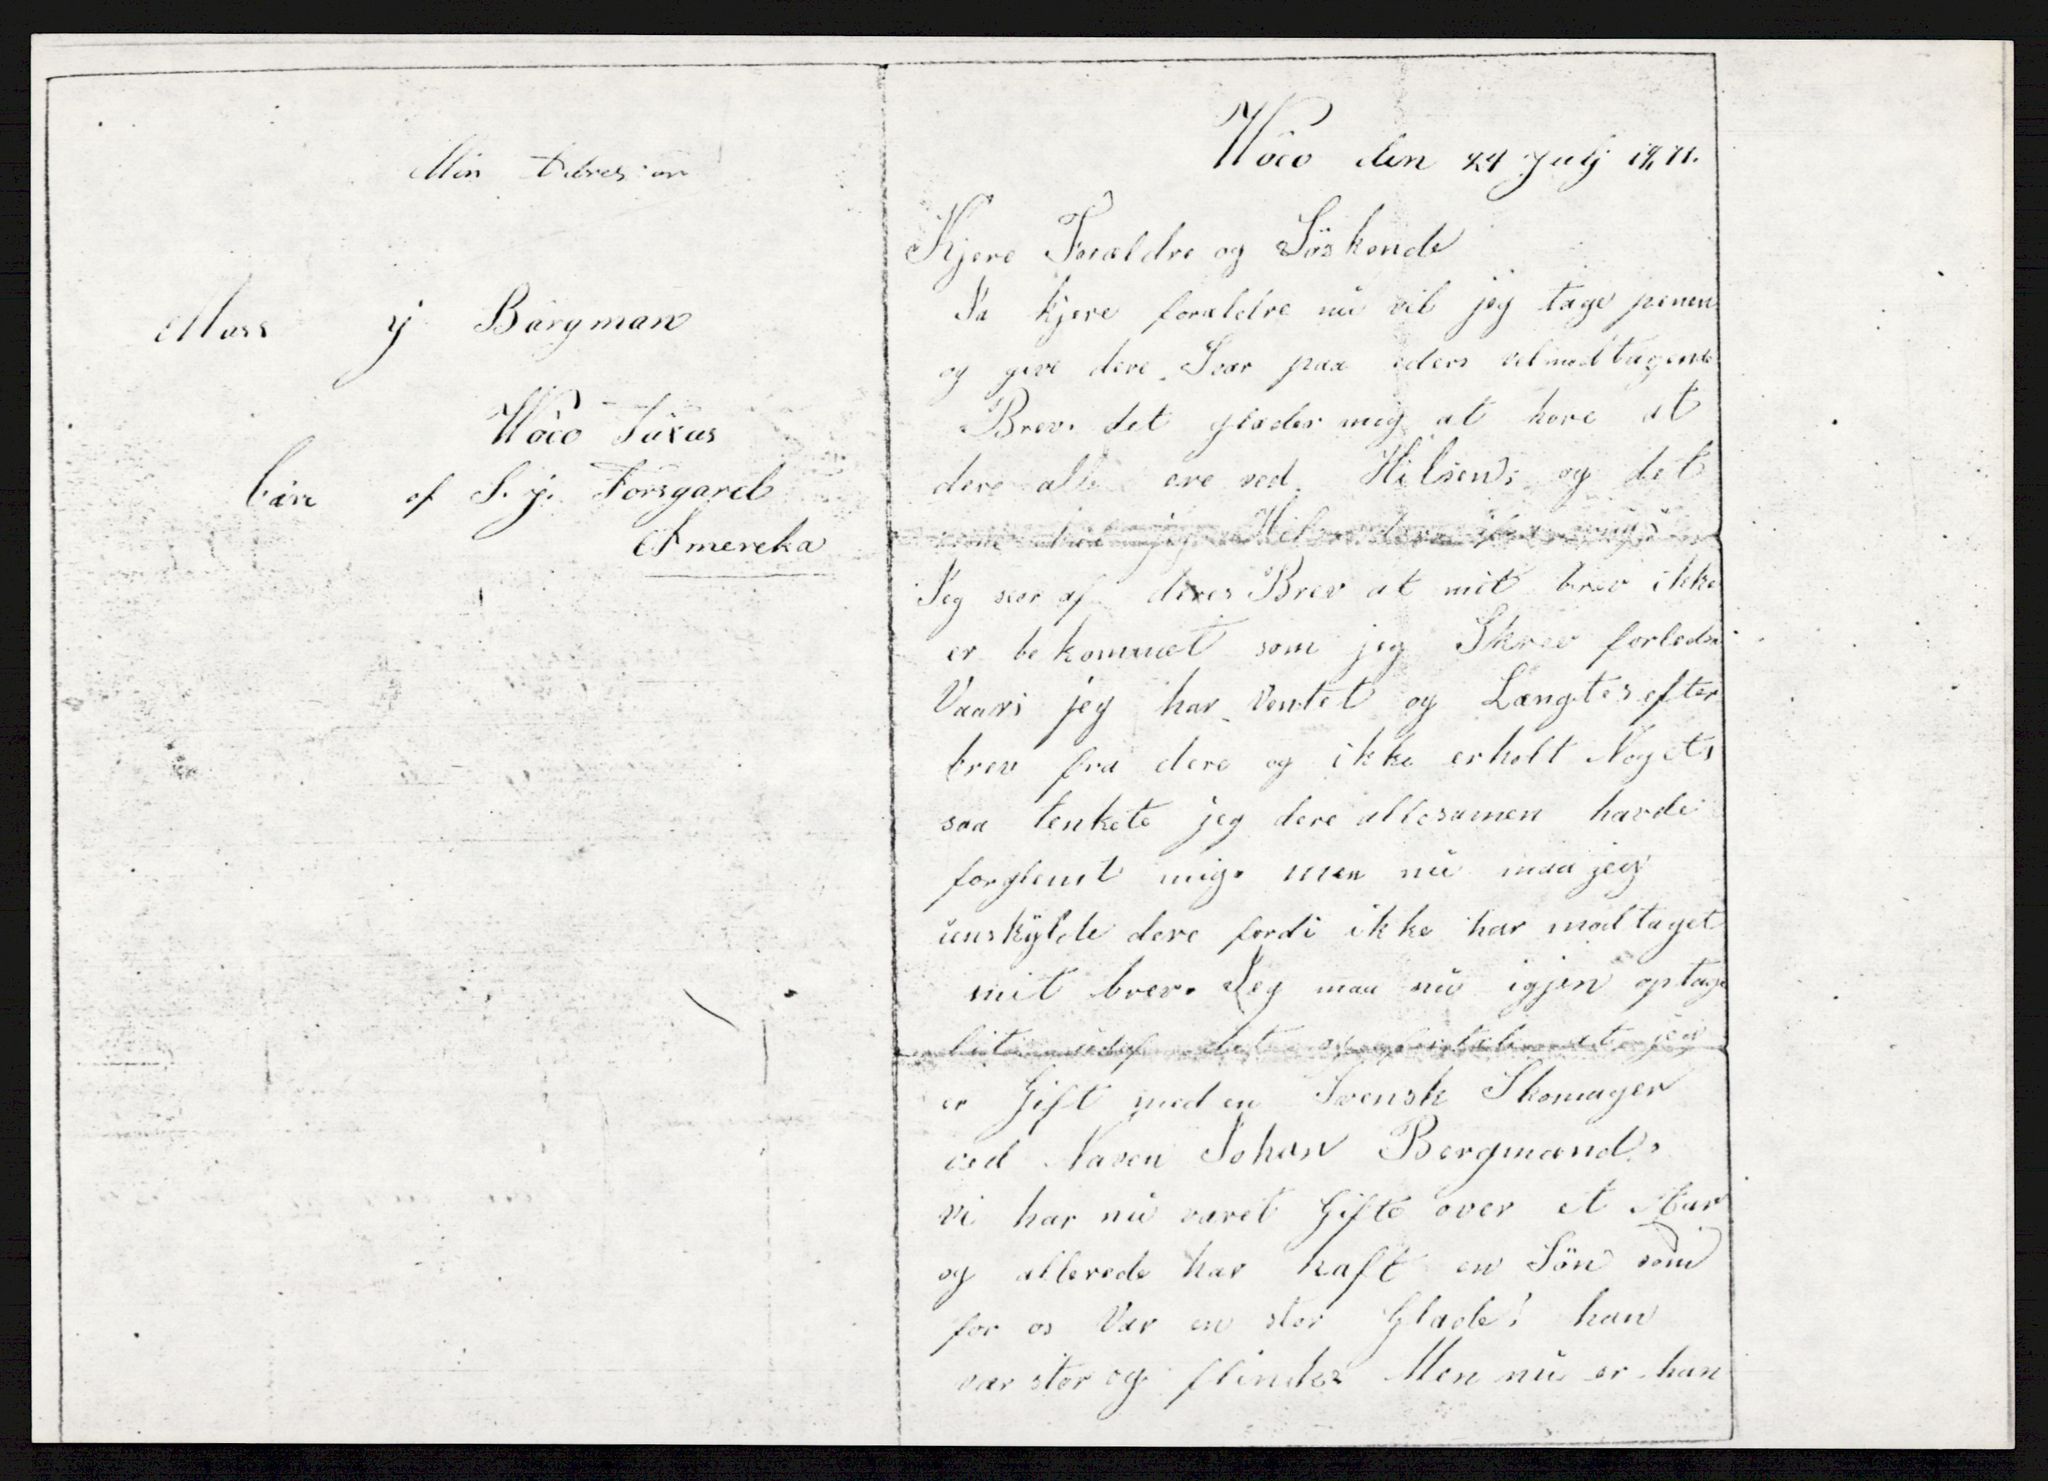 Min Adres er
Mass j Bargman
Waco Taxas
Care of S. J. Forsgard
Amereka
Waco den 24 July 1871.
Kjere Forældre og Söskende
Ja kjere forældre nu vil jeg tage penen
og give dere Svar paa eders velmodtagende
Brev. det glæder mig at höre at
dere alle ere ved Hilsen. og det
jeg
Jeg seer af deres Brev at mit brev ikke
er bekommet som jeg Skrev forleden
Vaar; jeg har Ventet og Længtes efter
brev fra dere og ikke erholt Noget,
saa tenkete jeg dere allesamen havde
forglemt mig. men nu maa jeg
uenskylde dere fordi ikke har modtaget
mit brev. Jeg maa nu igjen optage
lit udaf det og at jeg
er Gift med en Svensk Skomager
ved Naven Johan Bergmand.
vi har nu varet Gifte over et Aar
og allerede har haft en Sön som
for os Var en stor Glade! han
var stor og flink. Men nu er han